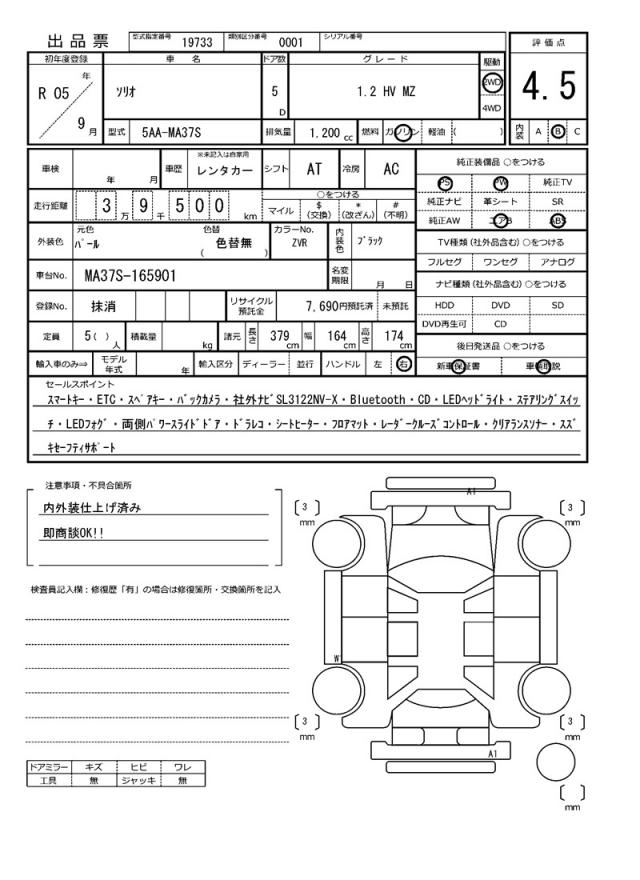 出品票 型式指定番号 19733 類別区分番号 0001 シリアル番号
評価点
4.5
内装 A B C
初年度登録 車名 ドア数 グレード 駆動
R 05 年 9 月 ソリオ 5 D 1.2 HV MZ 2WD 4WD
型式 5AA-MA37S 排気量 1.200 cc 燃料 ガソリン 軽油 ( )
車検 年 月 車歴 ※未記入は自家用 レンタカー シフト AT 冷房 AC
走行距離 3 万 9 千 5 0 0 km ○をつける
マイル $ (交換) * (改ざん) # (不明)
外装色 元色 パール 色替 色替無 ( ) カラーNo. ZVR 内装色 ブラック
車台No. MA37S-165901 名変期限 月 日
登録No. 抹消 リサイクル預託金 7,690円預託済 未預託
定員 5( ) 人 積載量 kg 諸元 長さ 379 cm 幅 164 cm 高さ 174 cm
輸入車のみ⇒ モデル年式 年 輸入区分 ディーラー 並行 ハンドル 左 右
純正装備品 ○をつける
PS PW 純正TV
純正ナビ 革シート SR
純正AW エアB ABS
TV種類(社外品含む) ○をつける
フルセグ ワンセグ アナログ
ナビ種類(社外品含む) ○をつける
HDD DVD SD
DVD再生可 CD
後日発送品 ○をつける
新車保証書 車輌取説
セールスポイント
スマートキー・ETC・スペアキー・バックカメラ・社外ナビSL3122NV-X・Bluetooth・CD・LEDヘッドライト・ステアリングスイッ
チ・LEDフォグ・両側パワースライドドア・ドラレコ・シートヒーター・フロアマット・レーダークルーズコントロール・クリアランスソナー・スズ
キセーフティサポート
注意事項・不具合箇所
内外装仕上げ済み
即商談OK!!
検査員記入欄：修復歴「有」の場合は修復箇所・交換箇所を記入
A1
〔 3 〕 mm 〔 3 〕 mm
W
〔 3 〕 mm 〔 3 〕 mm
A1
〔 〕 mm
ドアミラー キズ ヒビ ワレ
工具 無 ジャッキ 無